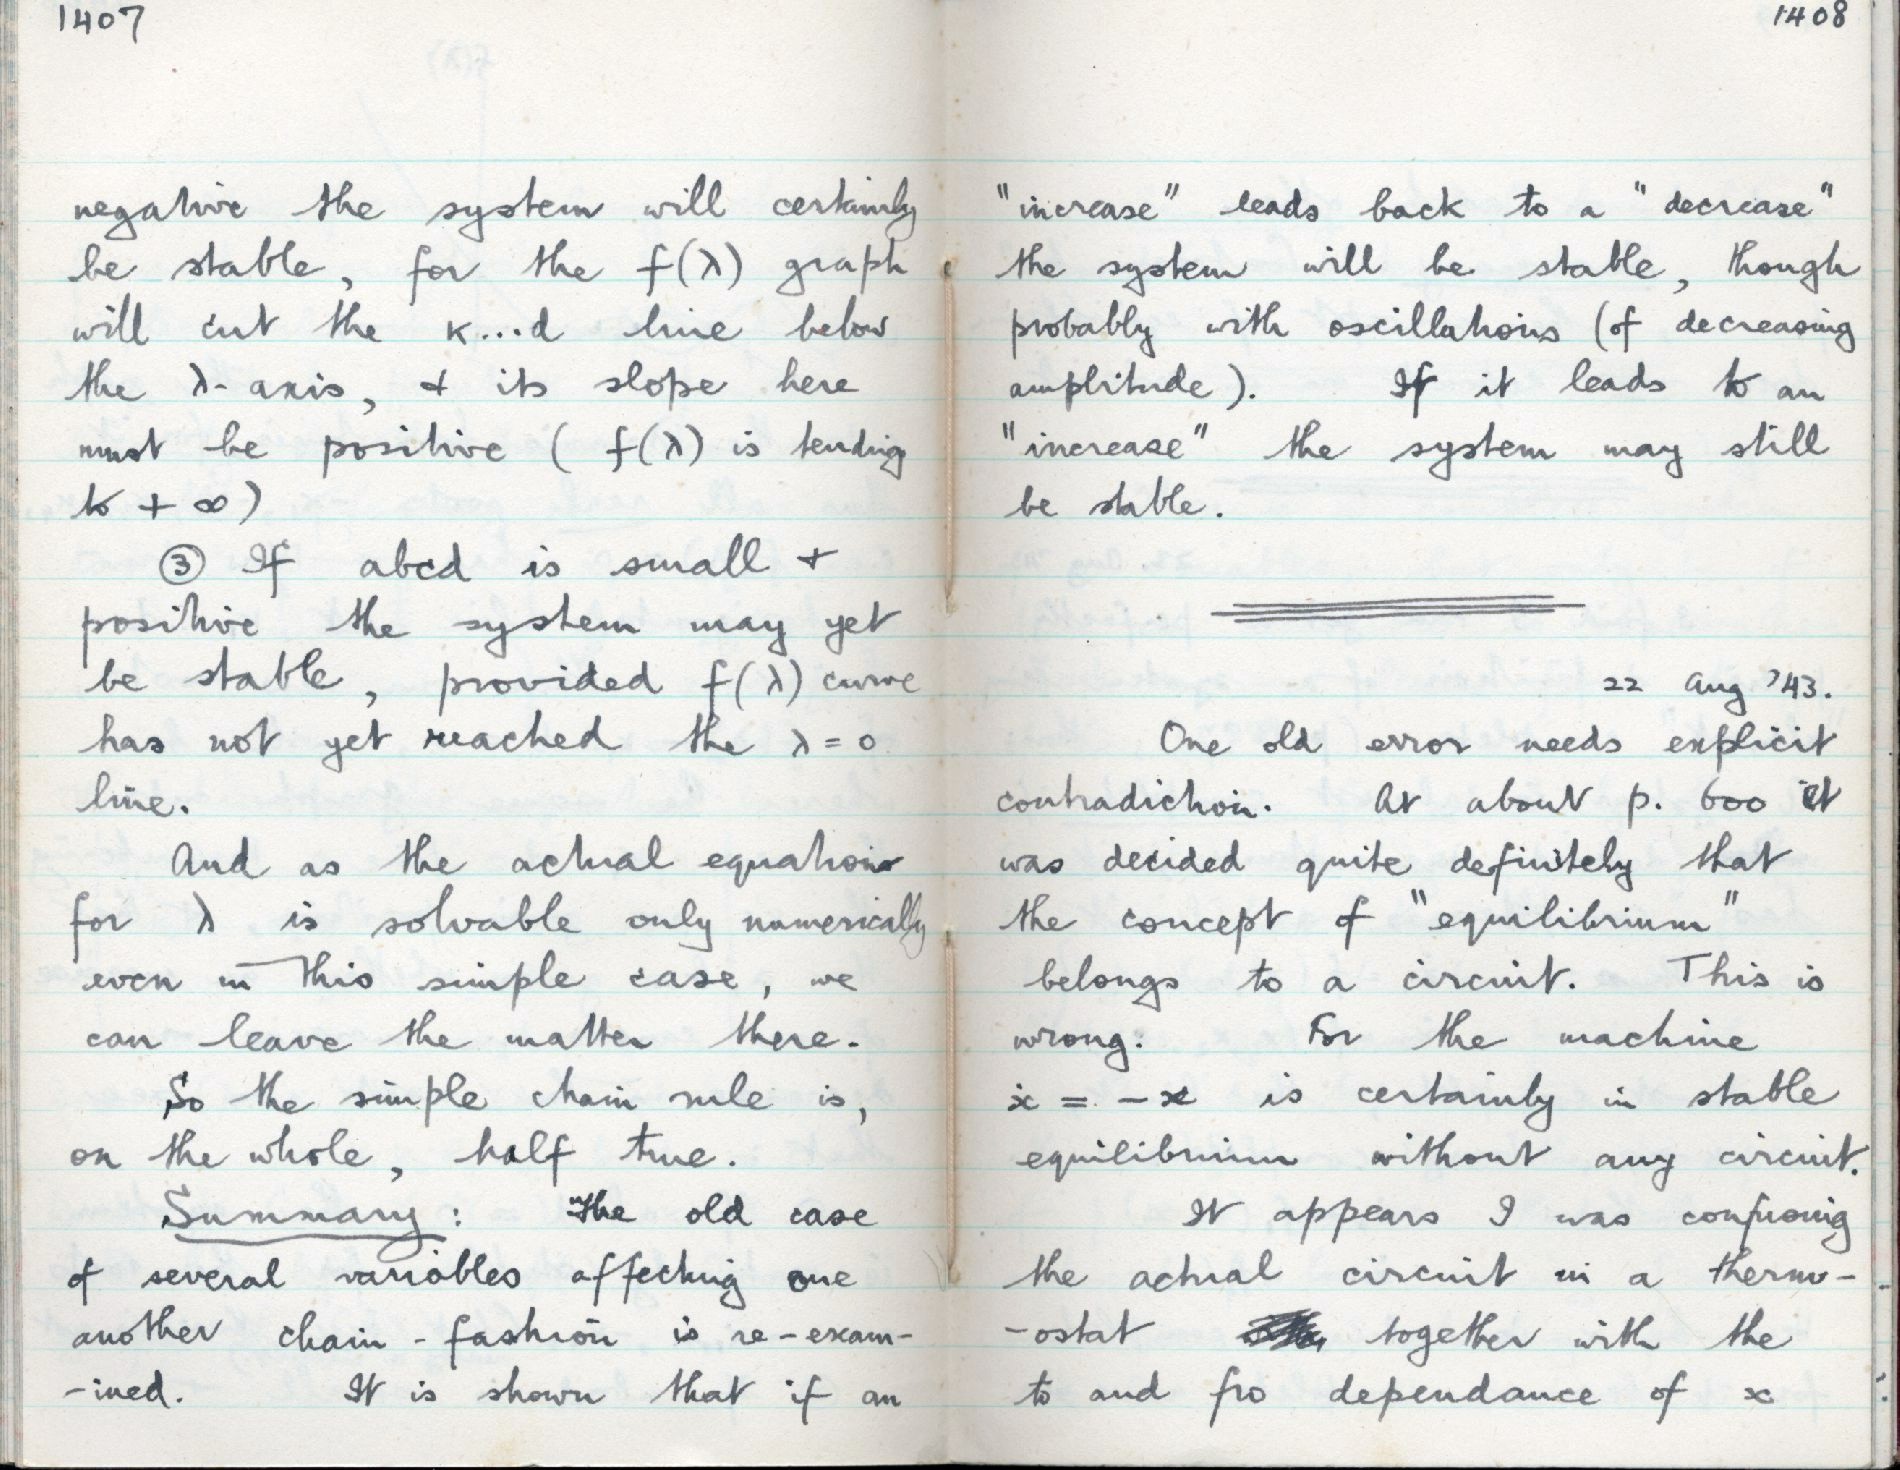 1407
negative the system will certainly
be stable, for the f(λ) graph
will cut the K...d line below
the λ-axis, + its slope here
must be positive ( f(λ) is tending
to + ∞)
③ If abcd is small +
positive the system may yet
be stable, provided f(λ) curve
has not yet reached the λ = 0
line.
And as the actual equations
for λ is solvable only numerically
even in this simple case, we
can leave the matter there.
So the simple chain rule is,
on the whole, half true.
Summary: The old case
of several variables affecting one
another chain-fashion is re-exam-
-ined. It is shown that if an
1408
"increase" leads back to a "decrease"
the system will be stable, though
probably with oscillations (of decreasing
amplitude). If it leads to an
"increase" the system may still
be stable.
22 Aug '43.
One old error needs explicit
contradiction. At about p. 600 it
was decided quite definitely that
the concept of "equilibrium"
belongs to a circuit. This is
wrong. For the machine
ẋ = -x is certainly in stable
equilibrium without any circuit.
It appears I was confusing
the actual circuit in a thermo-
-ostat together with the
to and fro dependance of x